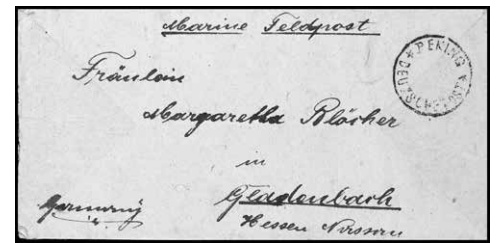 Marine Feldpost
PEKING
DEUTSCHE POST
Fräulein
Margaretha Blöcher
in
Gladenbach
Hessen Nassau
Germany